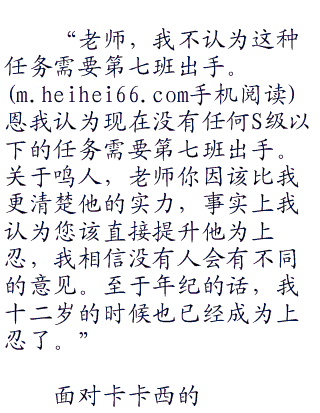 “老师，我不认为这种
任务需要第七班出手。
(m.heihei66.com手机阅读)
恩我认为现在没有任何S级以
下的任务需要第七班出手。
关于鸣人，老师你因该比我
更清楚他的实力，事实上我
认为您该直接提升他为上
忍，我相信没有人会有不同
的意见。至于年纪的话，我
十二岁的时候也已经成为上
忍了。”
面对卡卡西的